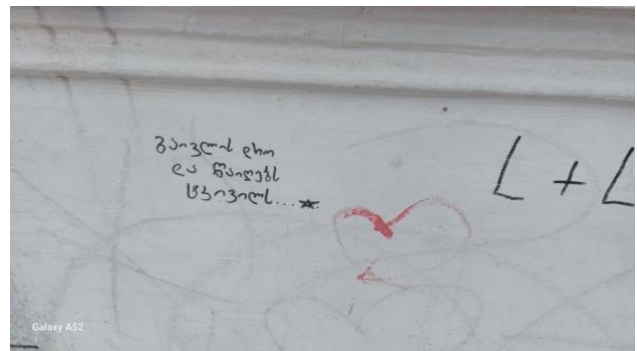 გაივლის დრო
და წაიღებს
ტკივილს...
L + L
Galaxy A52